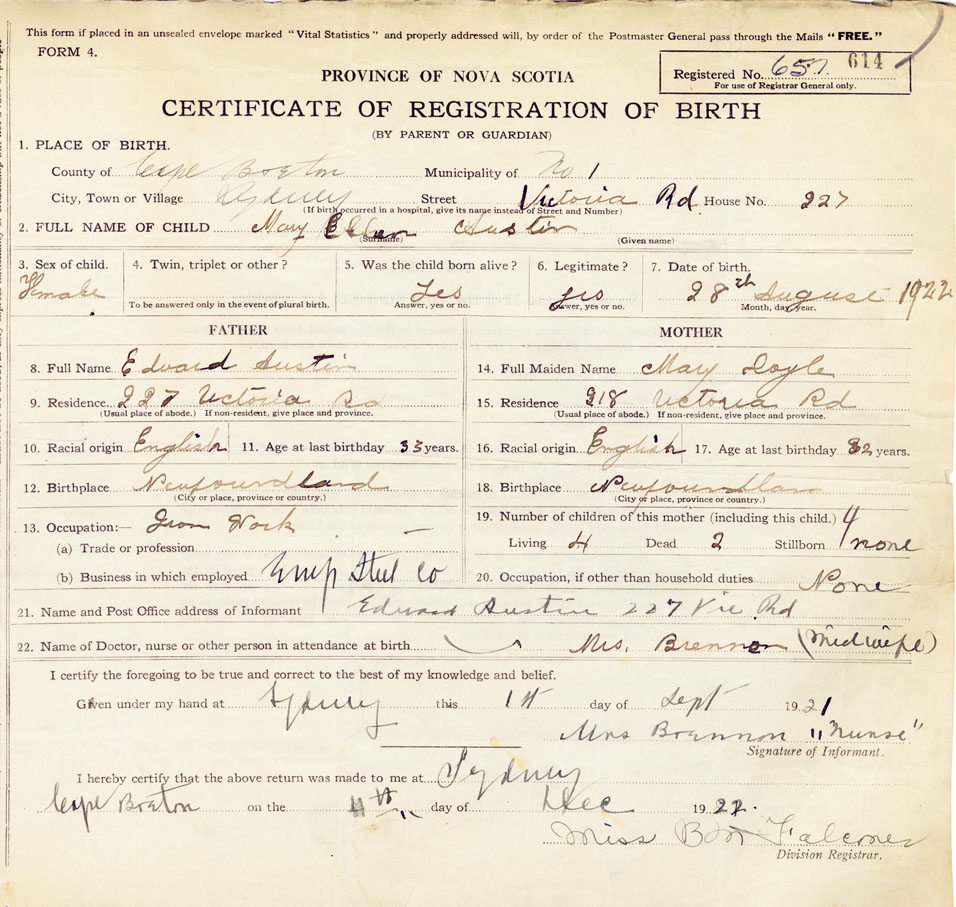 This form if placed in an unsealed envelope marked "Vital Statistics" and properly addressed will, by order of the Postmaster General pass through the Mails "FREE."
FORM 4.
614
Registered No. 657.
For use of Registrar General only.
PROVINCE OF NOVA SCOTIA
CERTIFICATE OF REGISTRATION OF BIRTH
(BY PARENT OR GUARDIAN)
1. PLACE OF BIRTH.
County of Cape Breton Municipality of No 1
City, Town or Village Sydney Street Victoria Rd House No. 227
(If birth occurred in a hospital, give its name instead of Street and Number)
2. FULL NAME OF CHILD Mary Ellen Austin
(Surname) (Given name)
3. Sex of child. 4. Twin, triplet or other? 5. Was the child born alive? 6. Legitimate? 7. Date of birth.
Female yes yes 28th August 1922
To be answered only in the event of plural birth. Answer, yes or no. Answer, yes or no. Month, day, year.
FATHER MOTHER
8. Full Name Edward Austin 14. Full Maiden Name May Doyle
9. Residence 227 Victoria Rd 15. Residence 218 Victoria Rd
(Usual place of abode.) If non-resident, give place and province. (Usual place of abode.) If non-resident, give place and province.
10. Racial origin English 11. Age at last birthday 33 years. 16. Racial origin English 17. Age at last birthday 32 years.
12. Birthplace Newfoundland 18. Birthplace Newfoundlan
(City or place, province or country.) (City or place, province or country.)
13. Occupation:— Iron Work 19. Number of children of this mother (including this child.) 4
(a) Trade or profession Living 4 Dead 2 Stillborn none
(b) Business in which employed Emp Steel Co 20. Occupation, if other than household duties None
21. Name and Post Office address of Informant Edward Austin 227 Vic Rd
22. Name of Doctor, nurse or other person in attendance at birth Mrs. Brennon (Midwife)
I certify the foregoing to be true and correct to the best of my knowledge and belief.
Given under my hand at Sydney this 1st day of Sept 1921
Mrs Brennon "Nurse"
Signature of Informant.
I hereby certify that the above return was made to me at Sydney
Cape Breton on the 4th day of Dec 1922.
Miss B M Falconer
Division Registrar.